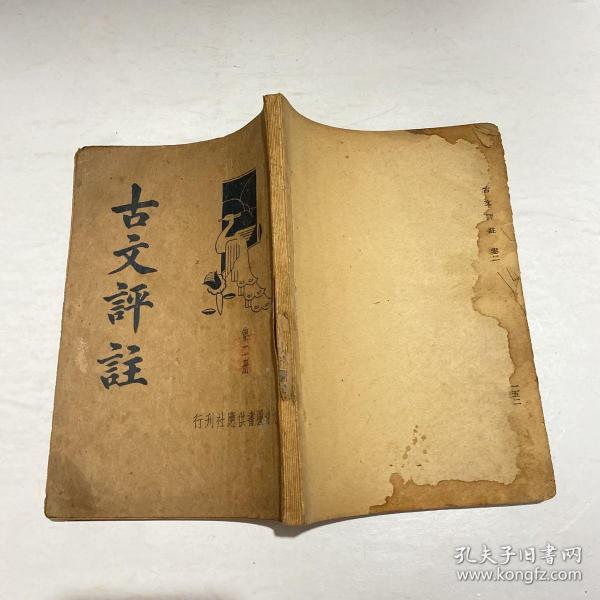 古文評註
第二册
行刊社應供書圖
古文評註 卷二
一五二
孔夫子旧书网
www.kongfz.com